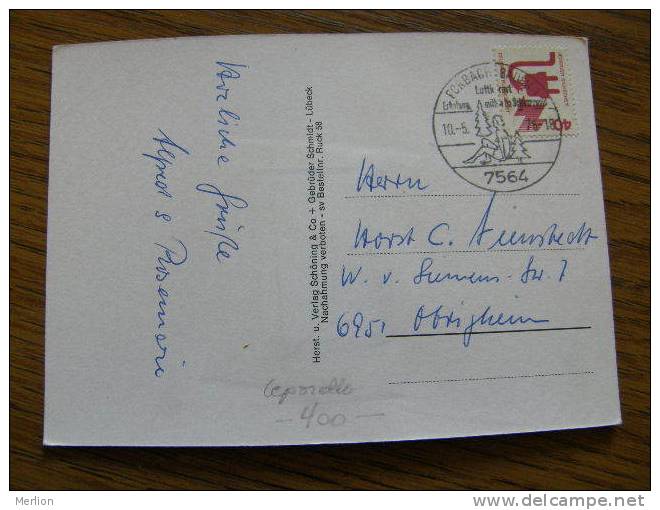 Herzliche Grüße
Alfred & Rosemarie
Herst. u. Verlag Schöning & Co + Gebrüder Schmidt - Lübeck
Nachahmung verboten - sv Bestellnr. Ruck 58
FORBACH
Luftkurort
Erholung
10.-5.
-18
7564
40
Herrn
Horst C.
W. v. Siemens-Str. 7
6951 Obrigheim
Leporello
- 400 -
Merlion
delcampe.net